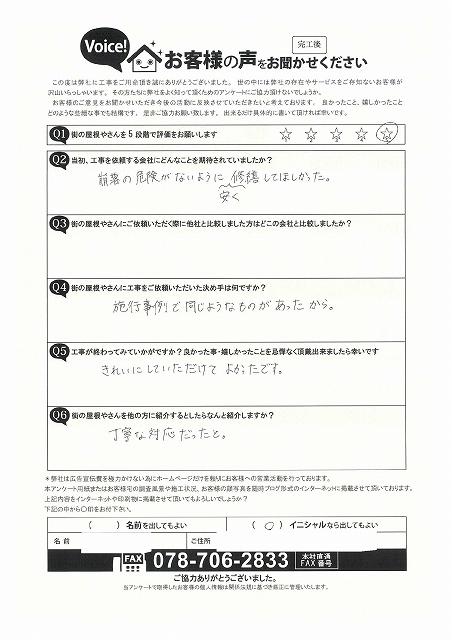 Voice! お客様の声をお聞かせください 完工後
この度は弊社に工事をご用命頂き誠にありがとうございました。世の中には弊社の存在やサービスをご存知ないお客様が
沢山いらっしゃいます。その方たちに弊社をよく知って頂くためのアンケートにご協力頂けないでしょうか。
お客様のご意見をお聞かせいただき今後の活動に反映させていただきたいと考えております。良かったこと、嬉しかったこと
どのような些細な事でも結構です。是非ご協力お願い致します。出来るだけ具体的に書いて頂ければ幸いです。
Q1 街の屋根やさんを5段階で評価をお願いします ☆ ☆ ☆ ☆ ☆
Q2 当初、工事を依頼する会社にどんなことを期待されていましたか?
崩落の危険がないように修繕してほしかった。
安く
Q3 街の屋根やさんにご依頼いただく際に他社と比較しました方はどこの会社と比較しましたか?
Q4 街の屋根やさんに工事をご依頼いただいた決め手は何ですか?
施行事例で同じようなものがあったから。
Q5 工事が終わってみていかがですか?良かった事・嬉しかったことを忌憚なく頂戴出来ましたら幸いです
きれいにしていただけてよかったです。
Q6 街の屋根やさんを他の方に紹介するとしたらなんと紹介しますか?
丁寧な対応だったと。
*弊社は広告宣伝費を極力かけない為にホームページだけを頼りにお客様への営業活動を行っております。
本アンケート用紙またはお客様宅の調査風景や施工状況、お客様の顔写真を随時ブログ形式のインターネットに掲載させて頂いております。
上記内容をインターネットや印刷物に掲載させて頂いてもよろしいでしょうか?
下記の中から〇印をお付下さい。
( ) 名前を出してもよい ( 〇 ) イニシャルなら出してもよい
名前 ご住所
FAX 078-706-2833 本社直通 FAX番号
ご協力ありがとうございました。
当アンケートで取得したお客様の個人情報は関係法規に基づき厳正に管理いたします。